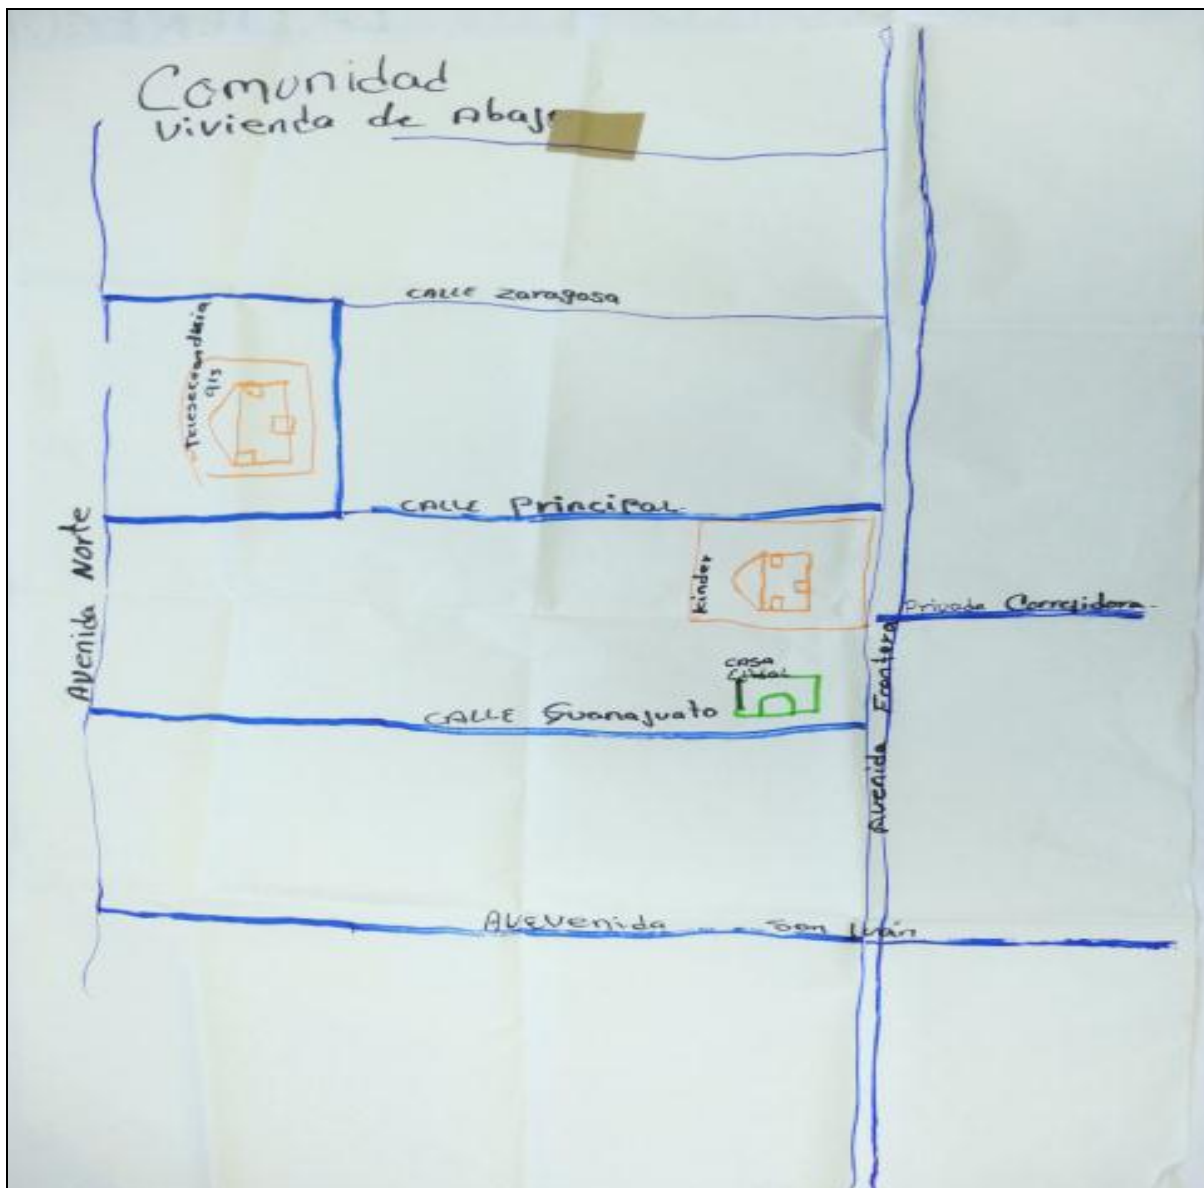 Comunidad
Vivienda de Abajo
CALLE Zaragosa
Telesecundaria
913
CALLE Principal
Avenida Norte
Kinder
Privada Corregidora
CASA
CALLE Guanajuato
Avenida Frontera
AVEVenida San Iván